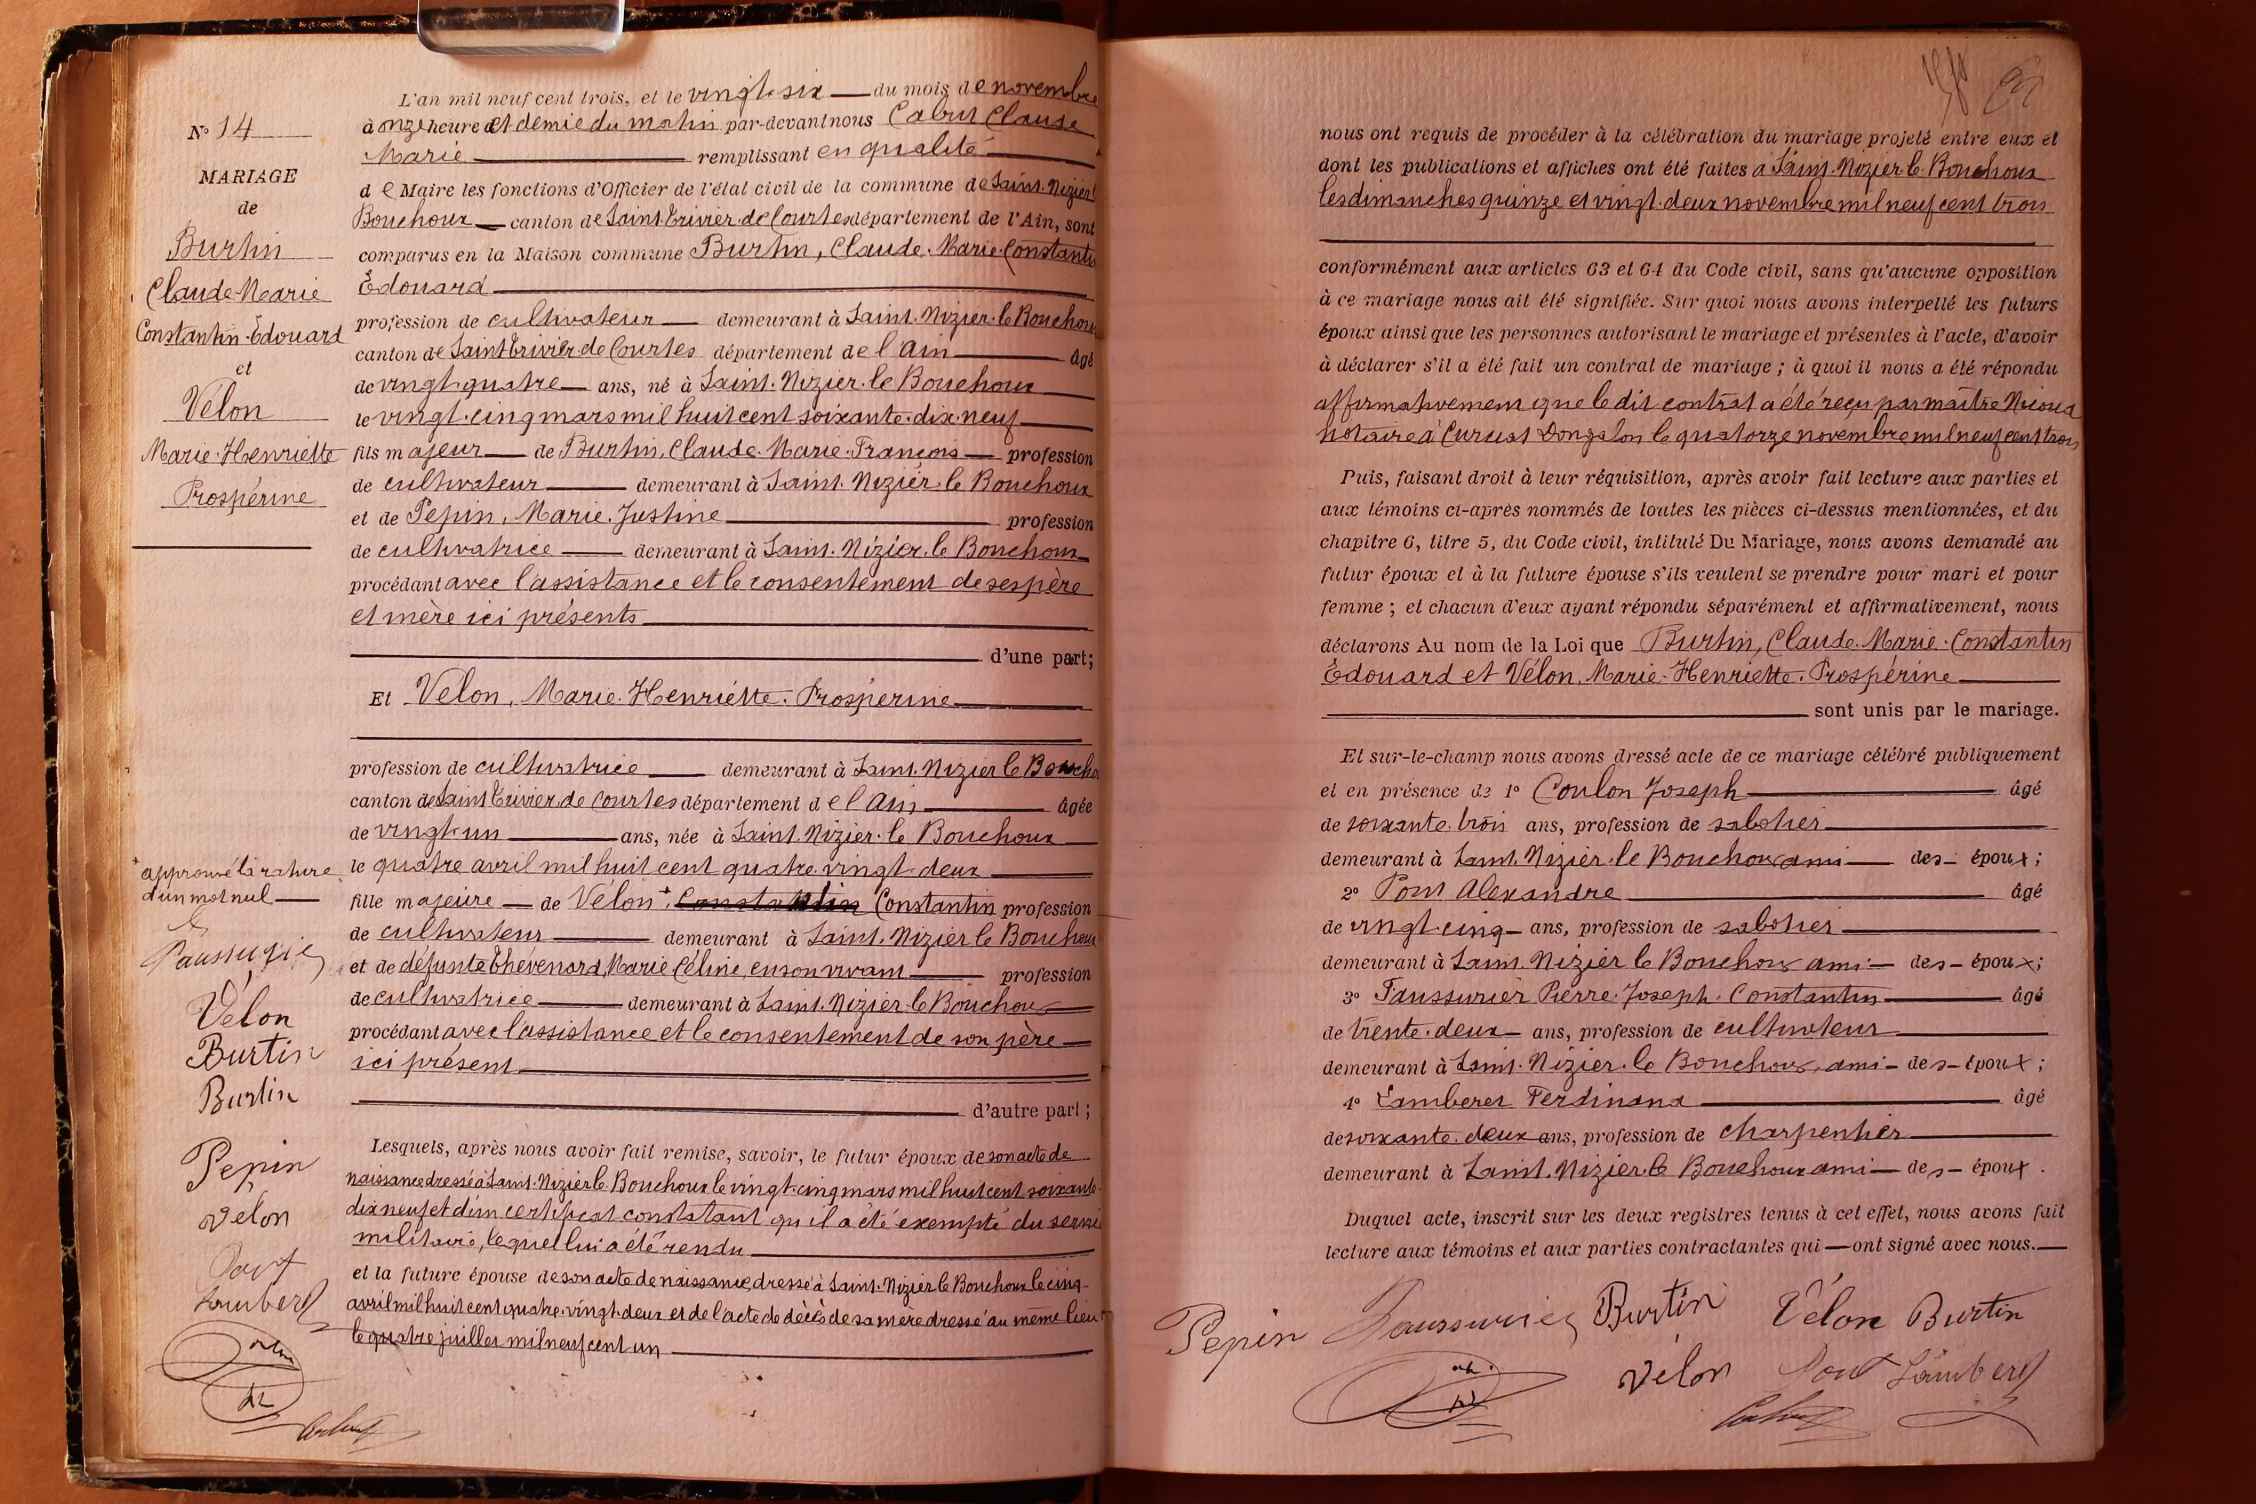 N° 14
MARIAGE
de
Burtin
Claude-Marie
Constantin-Édouard
et
Vélon
Marie-Henriette
Prospérine
L'an mil neuf cent trois, et le vingt-six du mois de novembre
à onze heure et demie du matin par-devant nous Cabut Claude
Marie remplissant en qualité
de Maire les fonctions d'Officier de l'état civil de la commune de Saint-Nizier le
Bouchoux canton de Saint-Trivier-de-Courtes département de l'Ain, sont
comparus en la Maison commune Burtin, Claude-Marie-Constantin
Édouard
profession de cultivateur demeurant à Saint-Nizier-le-Bouchoux
canton de Saint Trivier de Courtes département de l'Ain âgé
de vingt-quatre ans, né à Saint-Nizier-le Bouchoux
le vingt-cinq mars mil huit cent soixante-dix-neuf
fils majeur de Burtin, Claude-Marie-François profession
de cultivateur demeurant à Saint-Nizier-le Bouchoux
et de Pepin, Marie-Justine profession
de cultivatrice demeurant à Saint-Nizier-le Bouchoux
procédant avec l'assistance et le consentement de ses père
et mère ici présents
d'une part;
Et Vélon, Marie-Henriette-Prospérine
profession de cultivatrice demeurant à Saint-Nizier le Boucho
canton de Saint Trivier de Courtes département de l'Ain âgée
de vingt-un ans, née à Saint-Nizier-le Bouchoux
le quatre avril mil huit cent quatre-vingt-deux
fille majeure de Vélon, + Constantin Constantin profession
de cultivateur demeurant à Saint-Nizier le Bouchoux
et de défunte Thévenard, Marie Céline, en son vivant profession
de cultivatrice demeurant à Saint-Nizier-le Bouchoux
procédant avec l'assistance et le consentement de son père
ici présent
d'autre part;
Lesquels, après nous avoir fait remise, savoir, le futur époux de son acte de
naissance dressé à Saint-Nizier le Bouchoux le vingt-cinq mars mil huit cent soixante-
dix neuf et d'un certificat constatant qu'il a été exempté du servi
militaire, lequel lui a été rendu
et la future épouse de son acte de naissance, dressé à Saint-Nizier le Bouchoux le cinq
avril mil huit cent quatre-vingt-deux et de l'acte de décès de sa mère dressé au même lieu
le quatre juillet mil neuf cent un
+ approuvé la rature
d'un mot nul
Paussurier
Vélon
Burtin
Burtin
Pepin
Vélon
Pont
Lambert
Cabut
nous ont requis de procéder à la célébration du mariage projeté entre eux et
dont les publications et affiches ont été faites à Saint-Nizier-le-Bouchoux
les dimanches quinze et vingt-deux novembre mil neuf cent trois
conformément aux articles 63 et 64 du Code civil, sans qu'aucune opposition
à ce mariage nous ait été signifiée. Sur quoi nous avons interpellé les futurs
époux ainsi que les personnes autorisant le mariage et présentes à l'acte, d'avoir
à déclarer s'il a été fait un contrat de mariage; à quoi il nous a été répondu
affirmativement que le dit contrat a été reçu par maître Nicoud
notaire à Curciat Dongalon le quatorze novembre mil neuf cent trois
Puis, faisant droit à leur réquisition, après avoir fait lecture aux parties et
aux témoins ci-après nommés de toutes les pièces ci-dessus mentionnées, et du
chapitre 6, titre 5, du Code civil, intitulé Du Mariage, nous avons demandé au
futur époux et à la future épouse s'ils veulent se prendre pour mari et pour
femme; et chacun d'eux ayant répondu séparément et affirmativement, nous
déclarons Au nom de la Loi que Burtin, Claude-Marie-Constantin
Édouard et Vélon, Marie-Henriette-Prospérine
sont unis par le mariage.
Et sur-le-champ nous avons dressé acte de ce mariage célébré publiquement
et en présence de 1° Coulon Joseph âgé
de soixante-trois ans, profession de sabotier
demeurant à Saint-Nizier-le Bouchoux ami des époux;
2° Pont Alexandre âgé
de vingt-cinq ans, profession de sabotier
demeurant à Saint-Nizier le Bouchoux ami des époux;
3° Paussurier Pierre-Joseph-Constantin âgé
de trente-deux ans, profession de cultivateur
demeurant à Saint-Nizier-le Bouchoux, ami des époux;
4° Lamberet Ferdinand âgé
de soixante-deux ans, profession de charpentier
demeurant à Saint-Nizier-le Bouchoux ami des époux.
Duquel acte, inscrit sur les deux registres tenus à cet effet, nous avons fait
lecture aux témoins et aux parties contractantes qui ont signé avec nous.
Pepin Paussurier Burtin Vélon Burtin
Vélon Pont Lamberet
Cabut